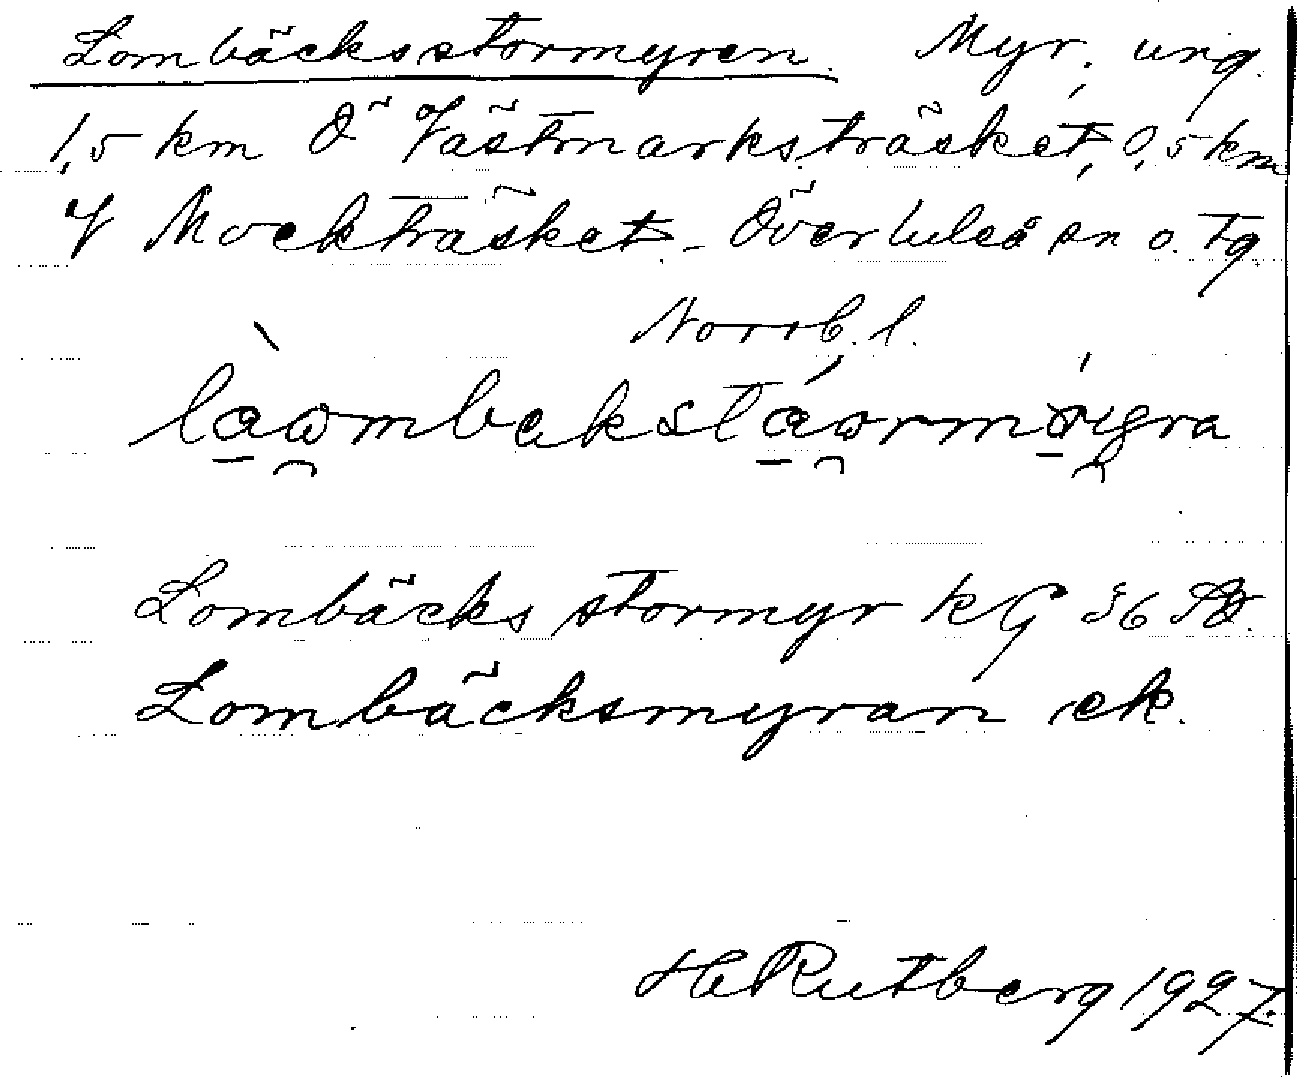 Lombäcksstormyren. Myr, ung.
1,5 km Ö Västmarksträsket, 0,5 km
V Mockträsket. Överluleå sn o. tg
Norrb. l.
Lombäcks stormyr kG 36 SO.
Lombäcksmyran ek.
H Rutberg 1927.